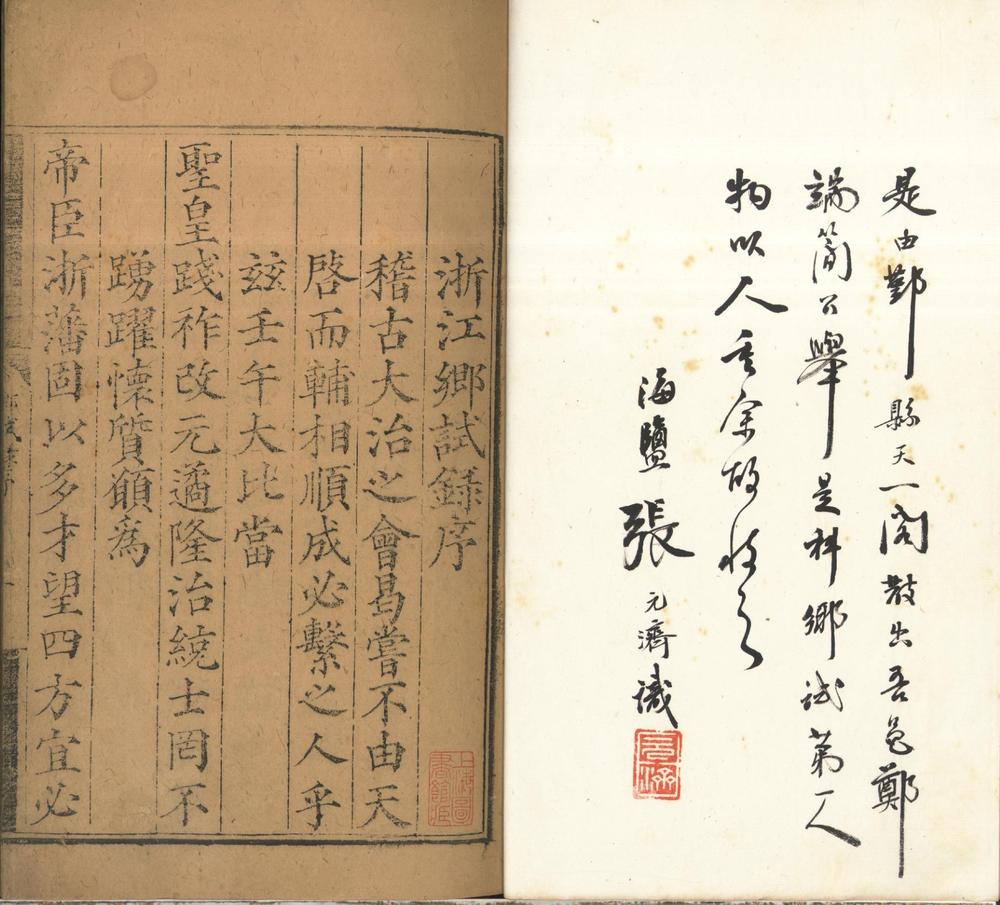 是由鄞縣天一閣散出吾邑鄭
端簡公舉是科鄉試第一人
物以人重余故收之
海鹽張元濟識
元濟
浙江鄉試錄序
稽古大治之會曷嘗不由天
啓而輔相順成必繫之人乎
茲壬午大比當
聖皇踐祚改元遹隆治統士罔不
踴躍懷質願爲
帝臣浙藩固以多才望四方宜必
上海圖
書館藏